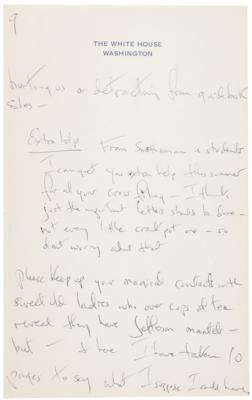 9
THE WHITE HOUSE
WASHINGTON
hurting us or detracting from guidebook
sales —
Extra help From Smithsonian & students
I can get you extra help this summer
for all your crow — I think
just the important letters should be done —
not every little crackpot one — so
don't worry about that
please keep up your magical contacts with
sweet old ladies who over cups of tea
reveal they have Jefferson mantels —
but — I have taken 10
pages to say what I suppose I could have